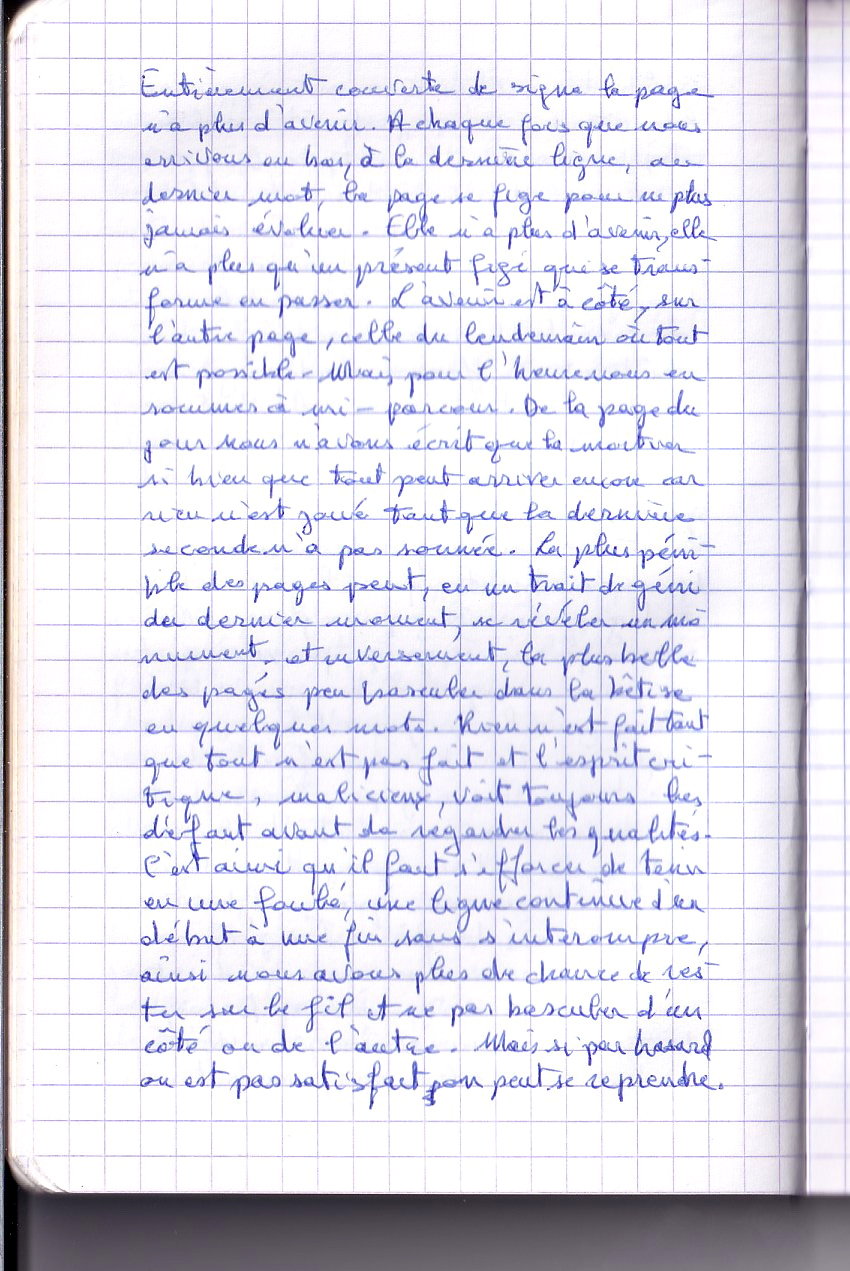 Entièrement couverte de signe la page
n'a plus d'avenir. A chaque fois que nous
arrivons en bas, à la dernière ligne, au
dernier mot, la page se fige pour ne plus
jamais évoluer. Elle n'a plus d'avenir, elle
n'a plus qu'un présent figé qui se trans-
forme en passer. L'avenir est à côté, sur
l'autre page, celle du lendemain où tout
est possible. Mais pour l'heure nous en
sommes à mi-parcour. De la page du
jour nous n'avons écrit que la moitier
si bien que tout peut arriver encore car
rien n'est joué tant que la dernière
seconde n'a pas sonnée. La plus péni-
ble des pages peut, en un trait de géni
du dernier moment, se révéler un mo
nument, et inversement, la plus belle
des pages peu basculer dans la bêtise
en quelques mots. Rien n'est fait tant
que tout n'est pas fait et l'esprit cri-
tique, malicieux, voit toujours les
défaut avant de regarder les qualités.
C'est ainsi qu'il faut s'efforcer de tenir
en une foulé, une ligne continue d'un
début à une fin sans s'interompre,
ainsi nous avons plus de chance de res-
ter sur le fil et ne pas basculer d'un
côté ou de l'autre. Mais si par hasard
on est pas satisfact, on peut se reprendre.